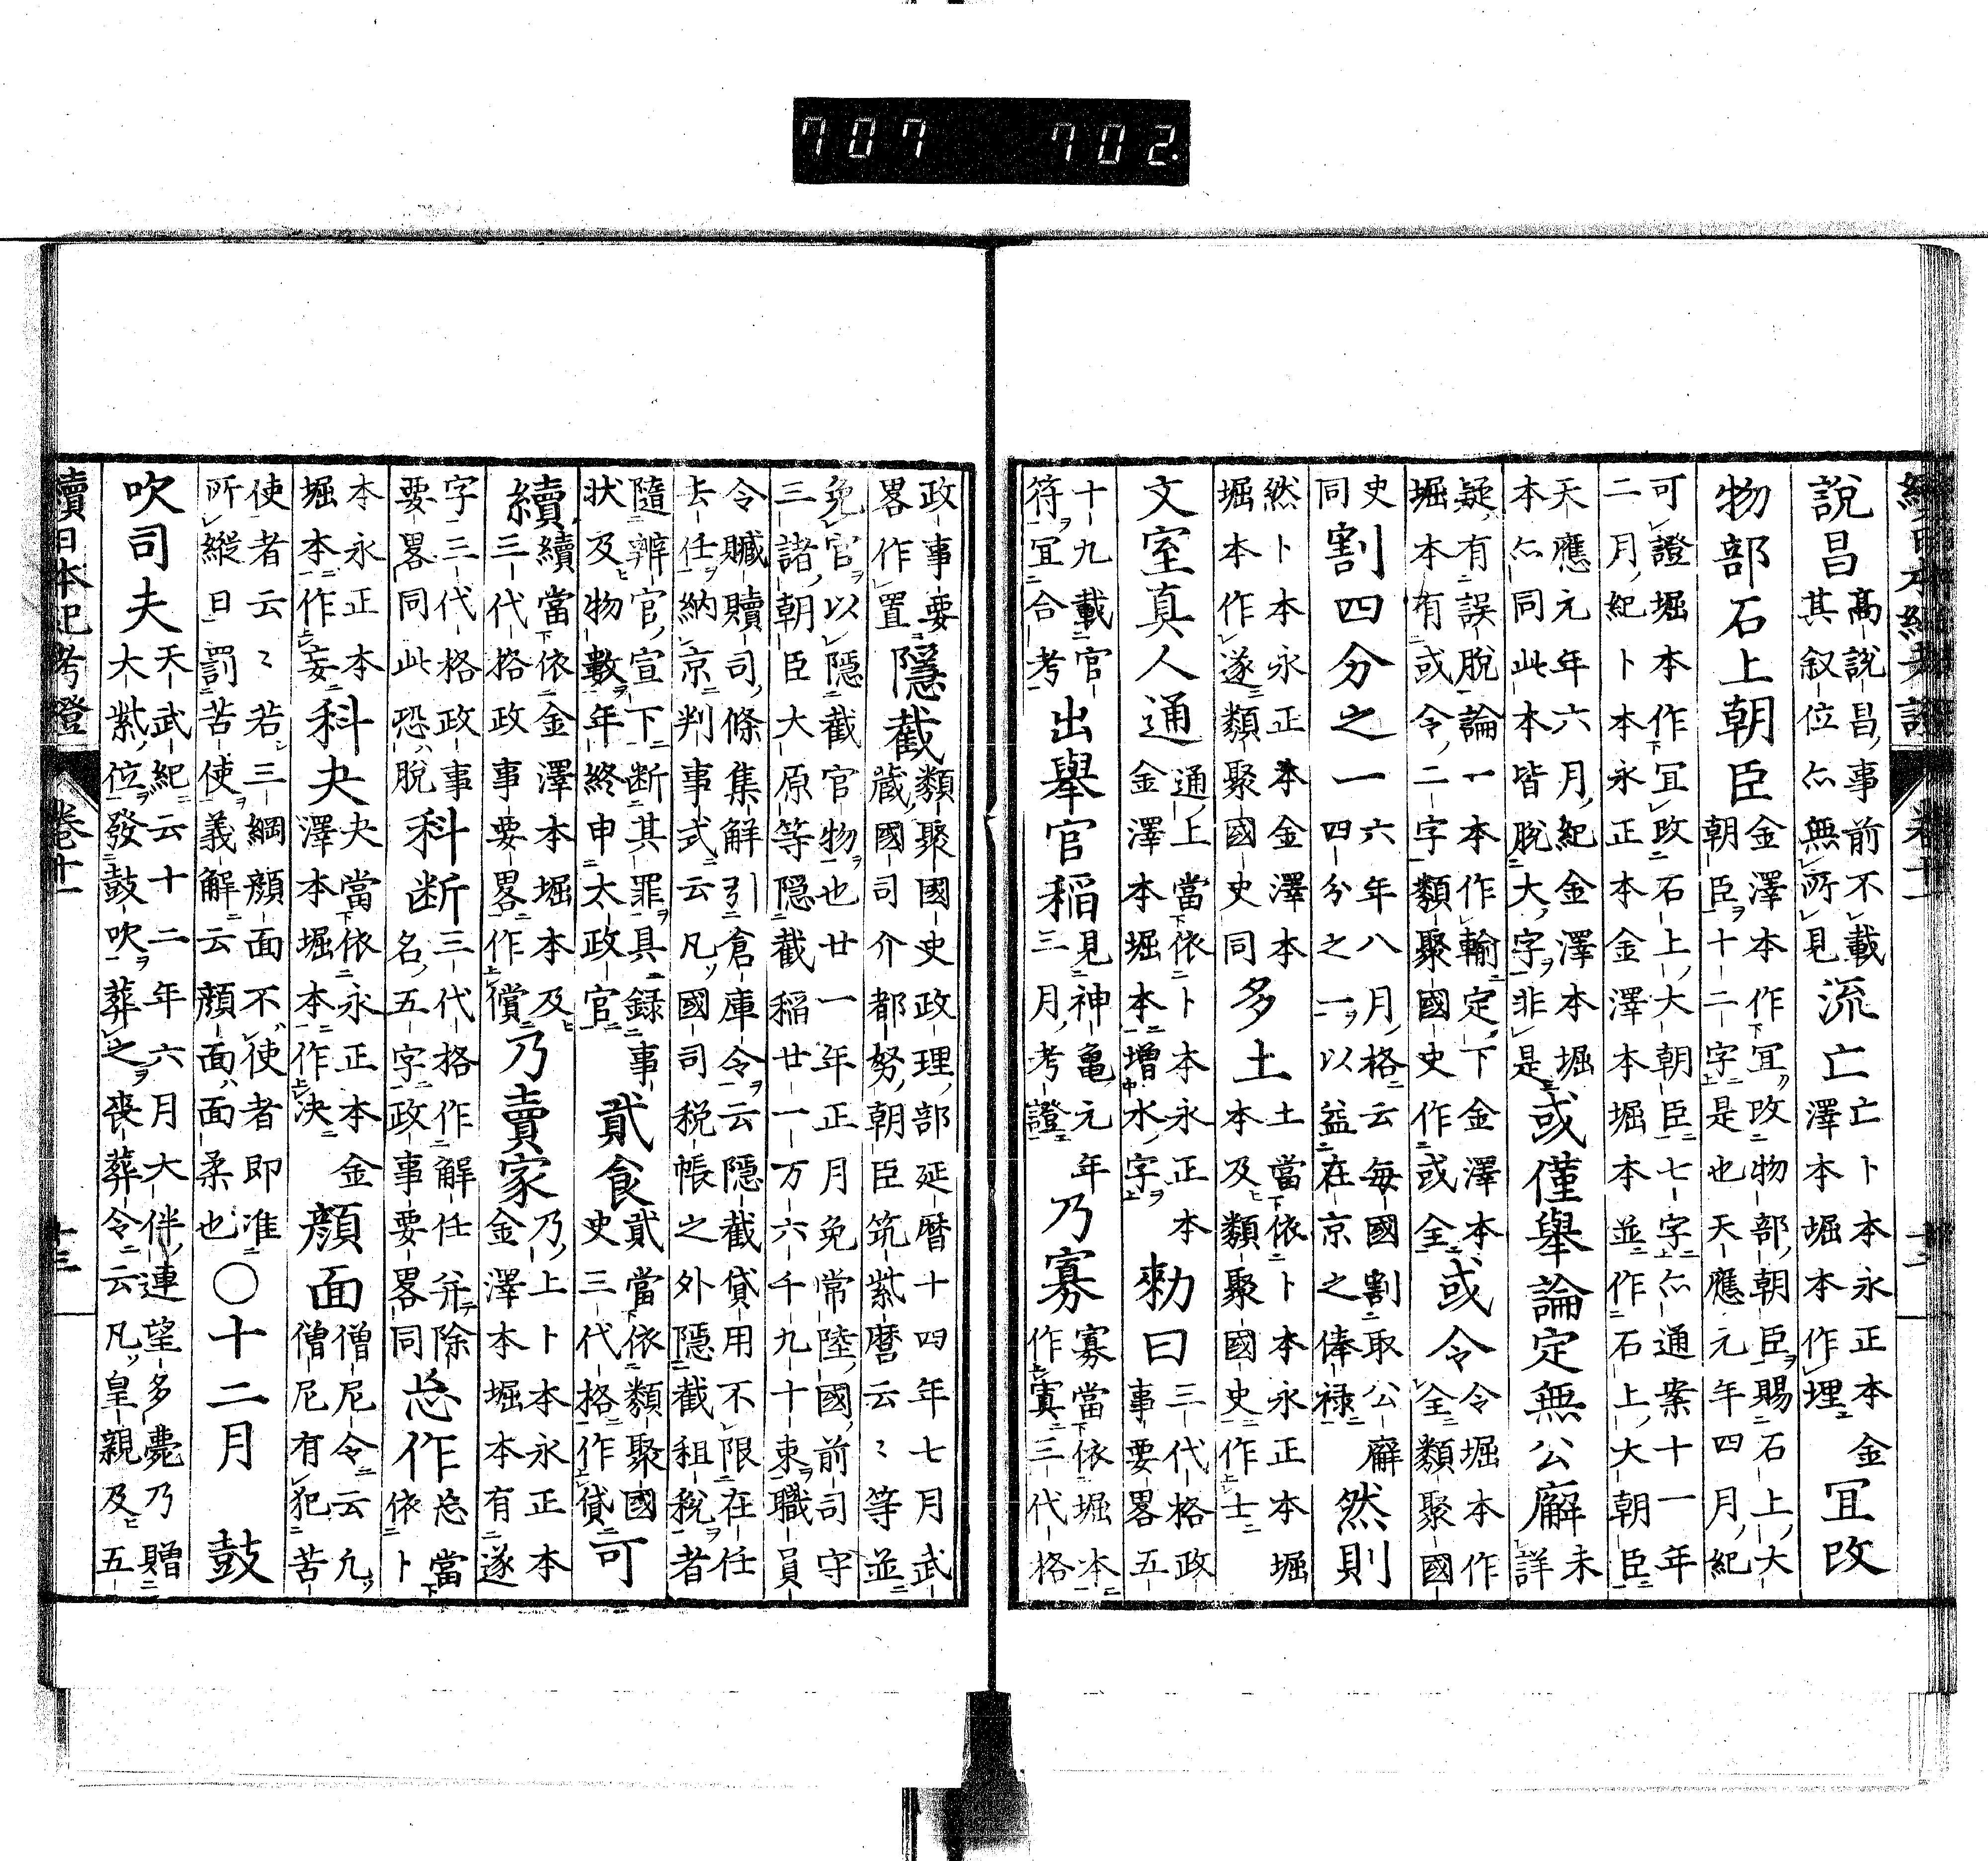 說昌 高説昌事前不載
其叙位亦無所見 流亡 亡卜本永正本金
澤本堀本作埋 宜改
物部石上朝臣 金澤本作宜改物部朝臣賜石上大
朝臣十二字是也天應元年四月紀
可證堀本作宜改石上大朝臣七字亦通案十一年
二月紀卜本永正本金澤本堀本並作石上大朝臣
天應元年六月紀金澤本堀
本亦同此本皆脱大字非是 或僅舉論定無公廨 未
詳
疑有誤脱論一本作輸定下金澤本
堀本有或令二字類聚國史作或全 或令 令堀本作
全類聚國
史
同 割四分之一 六年八月格云毎國割取公廨
四分之一以益在京之俸禄 然則
然卜本永正本金澤本
堀本作遂類聚國史同 多土 土當依卜本永正本堀
本及類聚國史作士
文室真人通 通上當依卜本永正本
金澤本堀本増水字 勅曰 三代格政
事要畧五
十九載官
符宜合考 出舉官稲 見神亀元年
三月考證 乃寡 寡當依堀本
作寘三代格
政事要
畧作置 隱截 類聚國史政理部延暦十四年七月武
藏國司介都努朝臣筑紫麿云〻等並
免官以隱截官物也廿一年正月免常陸國前司守
三諸朝臣大原等隱截稲廿一万六千九十束職員
令贓贖司條集解引倉庫令云隱截貸用不限在任
去任納京判事式云凡國司税帳之外隱截租税者
隨辨官宣下断其罪具録事
状及物數年終申太政官 貳食 貳當依類聚國
史三代格作貸 可
續 續當依金澤本堀本及
三代格政事要畧作償 乃賣家 乃上卜本永正本
金澤本堀本有遂
字三代格政事
要畧同此恐脱 科断 三代格作解任并除
名五字政事要畧同 忩作 忩當
依卜
本永正本
堀本作妄 科夬 夬當依永正本金
澤本堀本作决 顔面 僧尼令云凢
僧尼有犯苦
使者云〻若三綱顔面不使者即准
所縦日罰苦使義解云顔面面柔也 〇十二月 鼓
吹司夫 天武紀云十二年六月大伴連望多薨乃贈
大紫位發鼓吹葬之喪葬令云凡皇親及五
續日本紀考證 卷十一 十三
707 702.